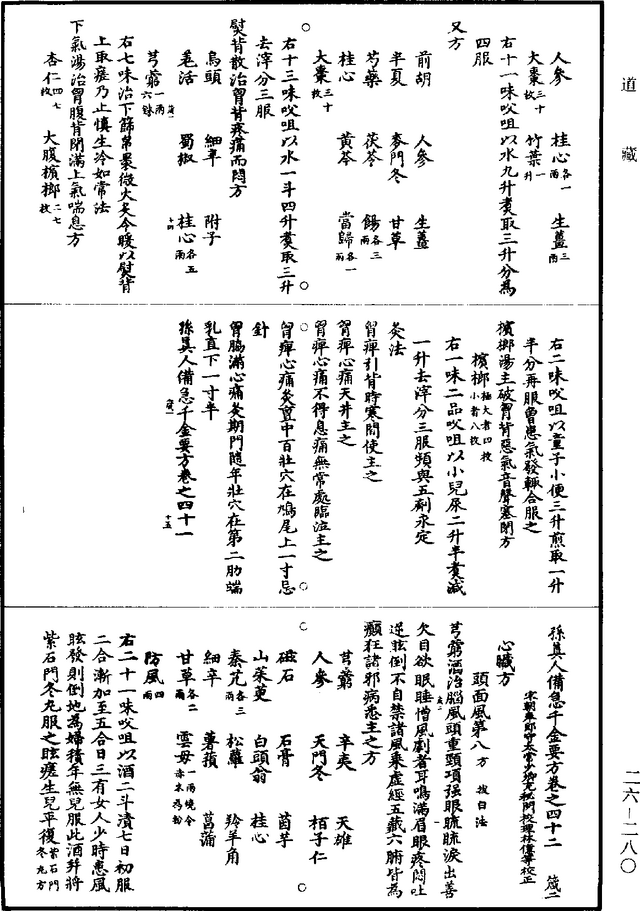 道藏
人參　桂心各一兩　生薑三兩
大棗三十枚　竹葉一升
右十一味㕮咀以水九升煑取三升分為
四服
又方
前胡　人參　生薑
半夏　麥門冬　甘草
芍藥　茯苓　餳各三兩
桂心　黃芩　當歸各一兩
大棗三十枚
右十三味㕮咀以水一斗四升煑取三升
去滓分三服
熨背散治胷背疼痛而悶方
烏頭　細辛　附子
羗活　蜀椒　桂心各五兩
芎藭一兩六銖
右七味治下篩帛裹微火炙令暖以熨背
上取瘥乃止慎生冷如常法
下氣湯治胷腹背閉滿上氣喘息方
杏仁四七枚　大腹檳榔二七枚
右二味㕮咀以童子小便三升煎取一升
半分再服曾患氣發輒合服之
檳榔湯主破胷背惡氣音聲塞閉方
檳榔極大者四枚小者八枚
右一味二品㕮咀以小兒尿二升半煑減
一升去滓分三服頻與五劑永定
灸法
胷痹引背時寒間使主之
胷痹心痛天井主之
胷痹心痛不得息痛無常處臨泣主之
胷痹心痛灸膻中百壯穴在鳩尾上一寸忌
針
胷脇滿心痛灸期門隨年壯穴在第二肋端
乳直下一寸半
孫真人備急千金要方卷之四十一
孫真人備急千金要方卷之四十二　箴二
宋朝奉郎守太常少卿充秘閣校理林億等校正
心臟方
頭面風第八方　拔白法
芎藭酒治腦風頭重頸項强眼䀮䀮淚出善
欠目欲眠睡憎風劇者耳鳴滿眉眼疼悶吐
逆眩倒不自禁諸風乘虛經五臟六腑皆為
癲狂諸邪病悉主之方
芎藭　辛夷　天雄
人參　天門冬　栢子仁
磁石　石膏　茵芋
山茱萸　白頭翁　桂心
秦艽各三兩　松蘿　羚羊角
細辛　薯蕷　菖蒲
甘草各二兩　雲母一兩燒令赤末為粉
防風四兩
右二十一味㕮咀以酒二斗漬七日初服
二合漸加至五合日三有女人少時患風
眩發則倒地為婦積年無兒服此酒并將
紫石門冬丸服之眩瘥生兒平復紫石門冬丸方
二六—二八〇